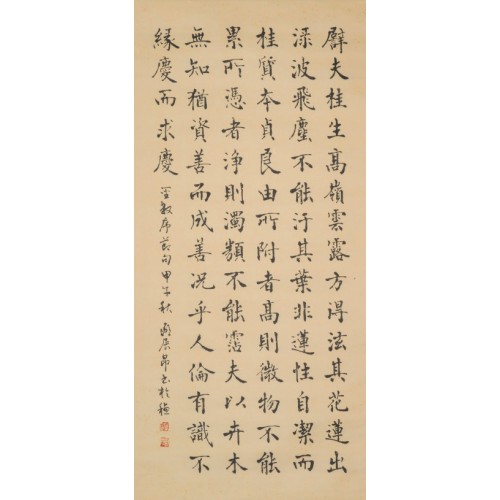 譬夫桂生高嶺雲露方得泫其花蓮出
淥波飛塵不能汙其葉非蓮性自潔而
桂質本貞良由所附者高則微物不能
累所憑者淨則濁類不能霑夫以卉木
無知猶資善而成善況乎人倫有識不
緣慶而求慶
聖教序節句甲午秋 昂書於穗